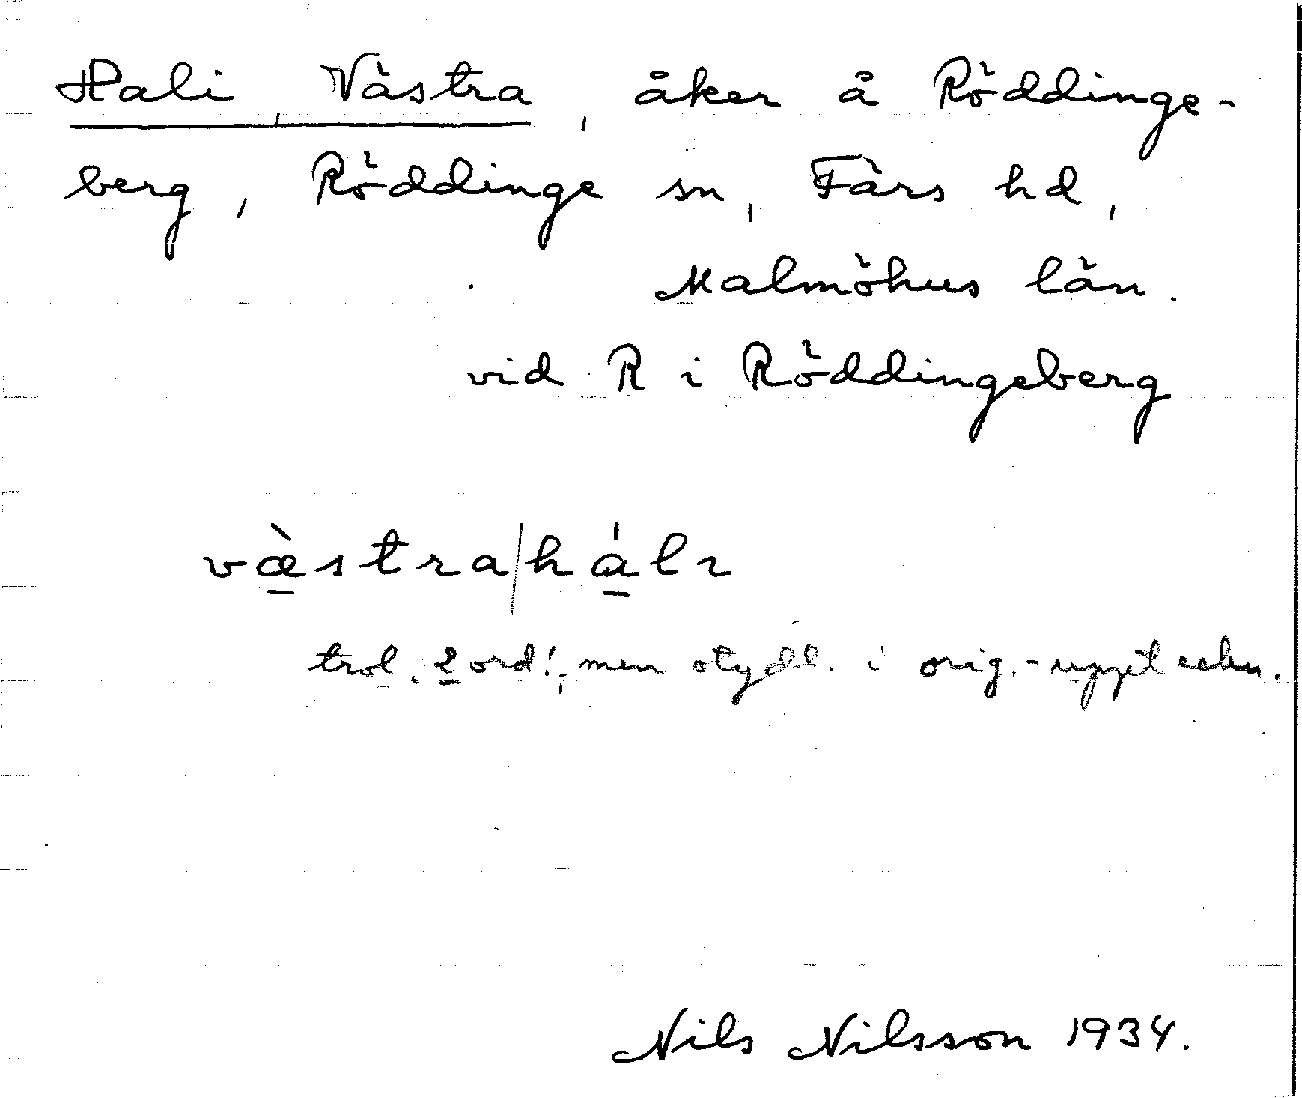 Hali, Västra, åker å Röddinge-
berg, Röddinge sn, Färs hd,
Malmöhus län.
vid R i Röddingeberg
væ̀stra|háli
trol. 2 ord!, men otydl. i orig.-uppteckn.
Nils Nilsson 1934.